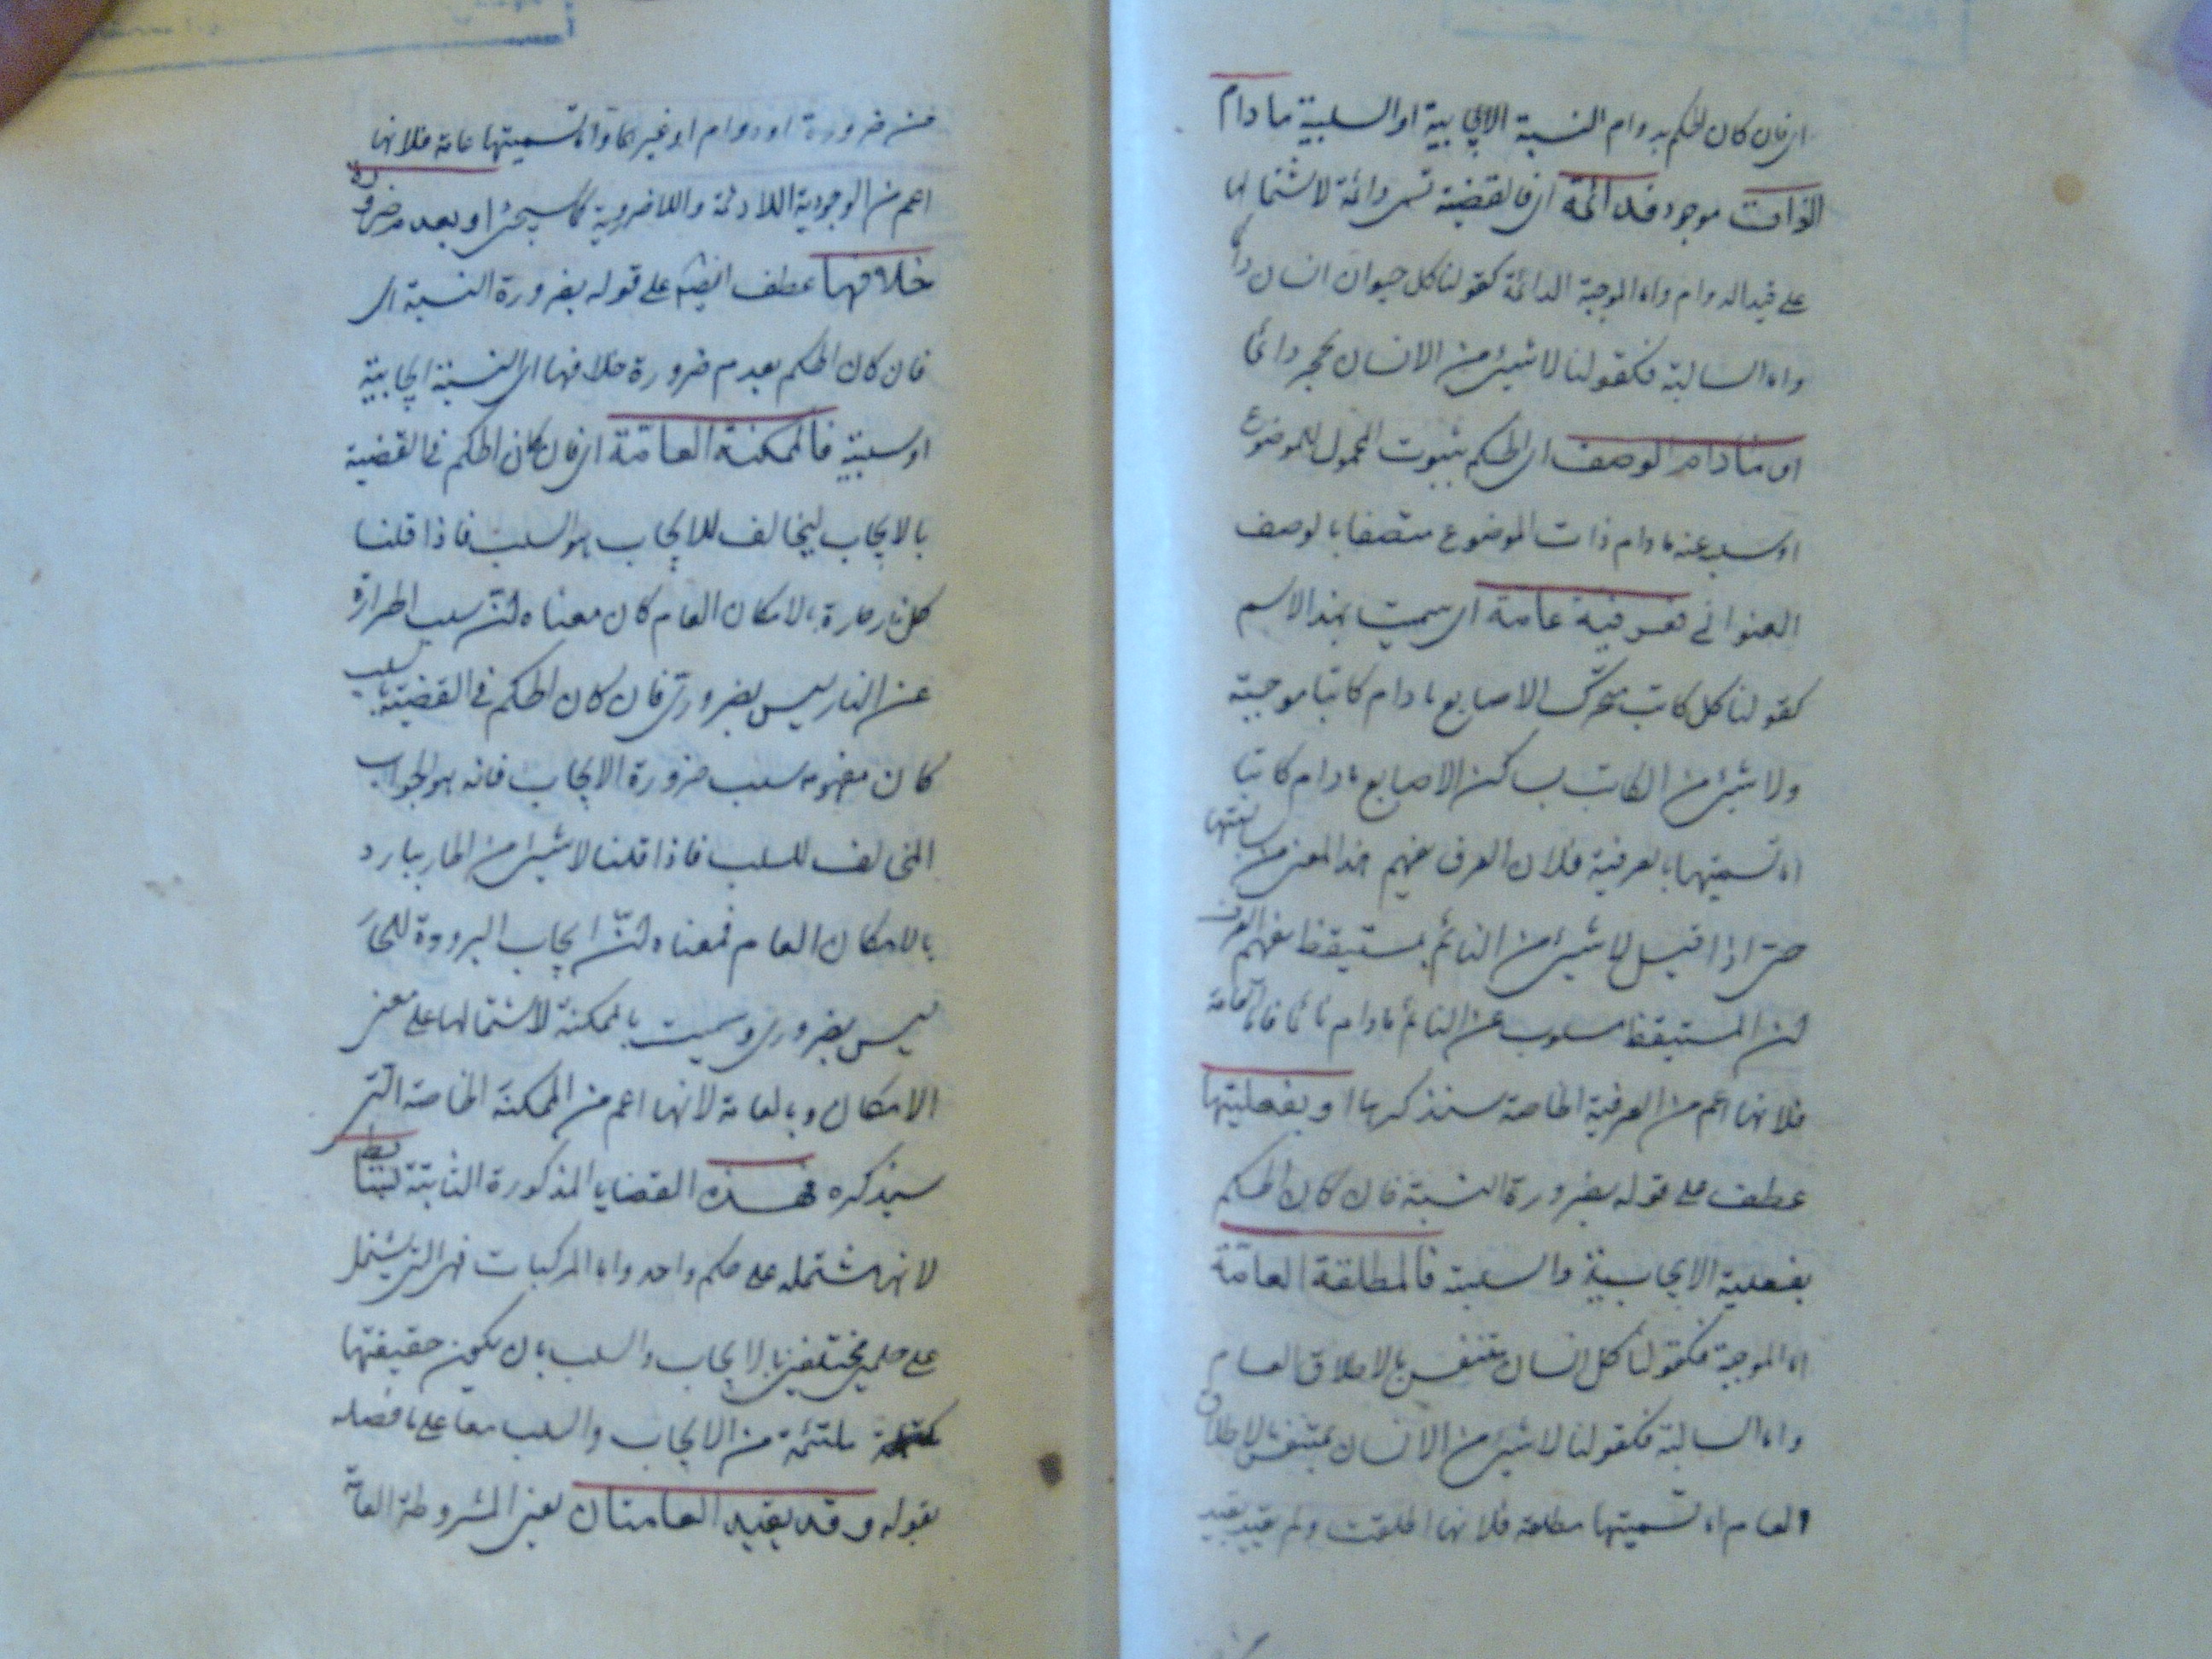 اى فان كان الحكم بدوام النسبة الايجابية او السلبية ما دام
الذات موجود فدائمة اى فالقضية تسمى دائمة لاشتمالها
على قيد الدوام واما الموجبة الدائمة كقولنا كل حيوان انسان دائما
واما السالبة فكقولنا لا شئ من الانسان بحجر دائما
او ما دام الوصف اى الحكم بثبوت المحمول للموضوع
او سلبه عنه ما دام ذات الموضوع متصفا بالوصف
العنوانى فعرفية عامة اى سميت بهذا الاسم
كقولنا كل كاتب متحرك الاصابع ما دام كاتبا موجبة
ولا شئ من الكاتب بساكن الاصابع ما دام كاتبا
اما تسميتها بالعرفية فلان العرف يفهم هذا المعنى من سالبتها
حتى اذا قيل لا شئ من النائم بمستيقظ يفهم العرف
ان المستيقظ مسلوب عن النائم ما دام نائما عامة
فلانها اعم من العرفية الخاصة سنذكرها او بفعليتها
عطف على قوله بضرورة النسبة فان كان الحكم
بفعلية الايجابية والسلبية فالمطلقة العامة
اما الموجبة فكقولنا كل انسان متنفس بالاطلاق العام
واما السالبة فكقولنا لا شئ من الانسان بمتنفس بالاطلاق
العام اما تسميتها مطلقة فلانها اطلقت ولم تقيد بقيد
من ضرورة او دوام او غيرهما واما تسميتها عامة فلانها
اعم من الوجودية اللادائمة واللاضرورية كما سيجئ او بعدم ضرورة
خلافها عطف ايضا على قوله بضرورة النسبة اى
فان كان الحكم بعدم ضرورة خلافها اى النسبة ايجابية
او سلبية فالممكنة العامة اى فان كان الحكم فى القضية
بالايجاب المخالف للايجاب هو السلب فاذا قلنا
كل نار حارة بالامكان العام كان معناه ان سلب الحرارة
عن النار ليس بضرورى فان كان الحكم فى القضية بالسلب
كان مفهومه سلب ضرورة الايجاب فانه هو الجواب
المخالف للسلب فاذا قلنا لا شئ من الحار ببارد
بالامكان العام فمعناه ان ايجاب البرودة للحار
ليس بضرورى وسميت بالممكنة لاشتمالها على معنى
الامكان وبالعامة لانها اعم من الممكنة الخاصة التى
سيذكره فهذه القضايا المذكورة الثابتة بسائط
لانها مشتملة على حكم واحد واما المركبات فهى التى يشتمل
على حكمين مختلفين بالايجاب والسلب بان يكون حقيقتها
ملتئمة من الايجاب والسلب معا على ما فصله
بقوله وقد يقيد العامتان يعنى المشروطة العامة